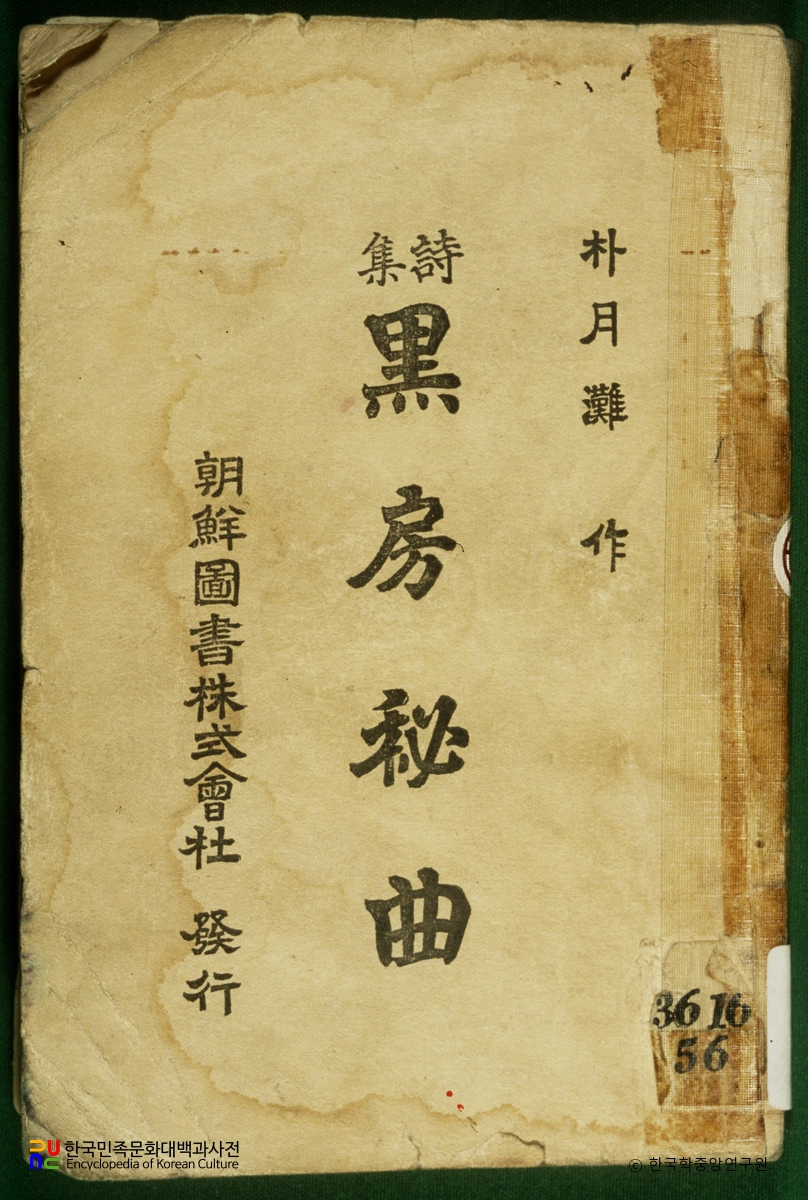 朴月灘 作
詩集
黒房秘曲
朝鮮圖書株式會社 發行
3616
56
한국민족문화대백과사전
Encyclopedia of Korean Culture
© 한국학중앙연구원